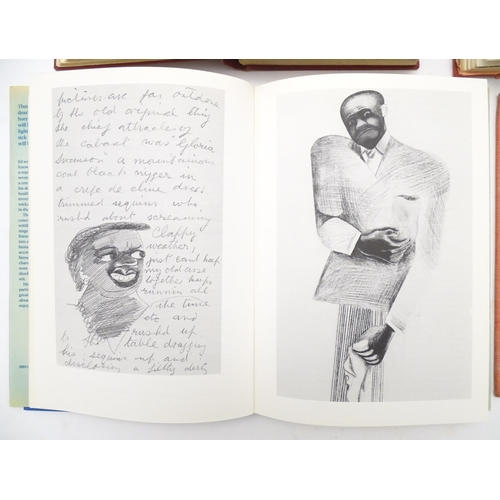 Pictures are far outdone
by the old original thing
the chief attraction of
the cabaret was Gloria
Swanson a mountainous
coal black nigger in a
crepe de chine dress
trimmed sequins who
rush'd about screaming
Clappy
weather,
just cant keep
my old arse
together keeps
runnin all
the time
etc and
rush'd up
to the table dragging
his sequins up and
disclosing a filthy derty